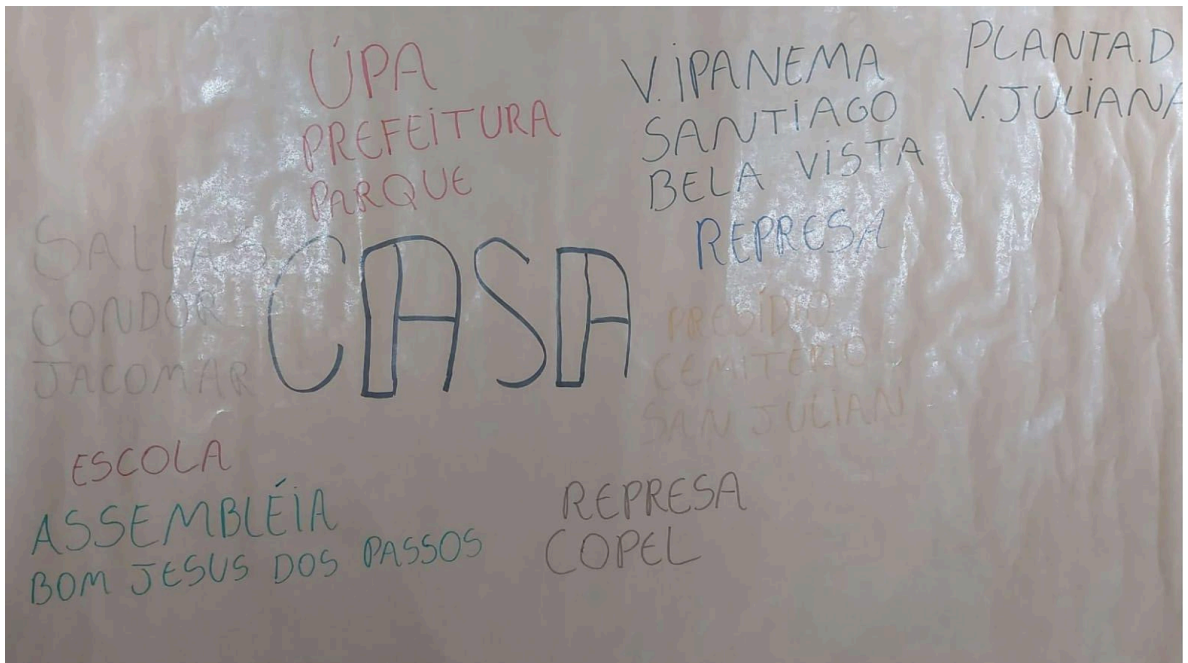 ÚPA
PREFEITURA
PARQUE
V. IPANEMA
SANTIAGO
BELA VISTA
PLANTA.D
V. JULIANA
REPRESA
SALLAS
CONDOR
JACOMAR
CASA
PRESÍDIO
CEMITÉRIO
SAN JULIAN
ESCOLA
ASSEMBLÉIA
BOM JESUS DOS PASSOS
REPRESA
COPEL